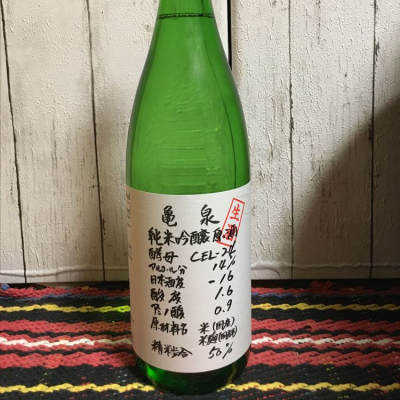 亀泉
生酒
純米吟醸原酒
酵母 CEL-24
アルコール分 14%
日本酒度 -16
酸度 1.6
アミノ酸 0.9
原材料名 米(国産)
米麹(国産米)
精米歩合 50%